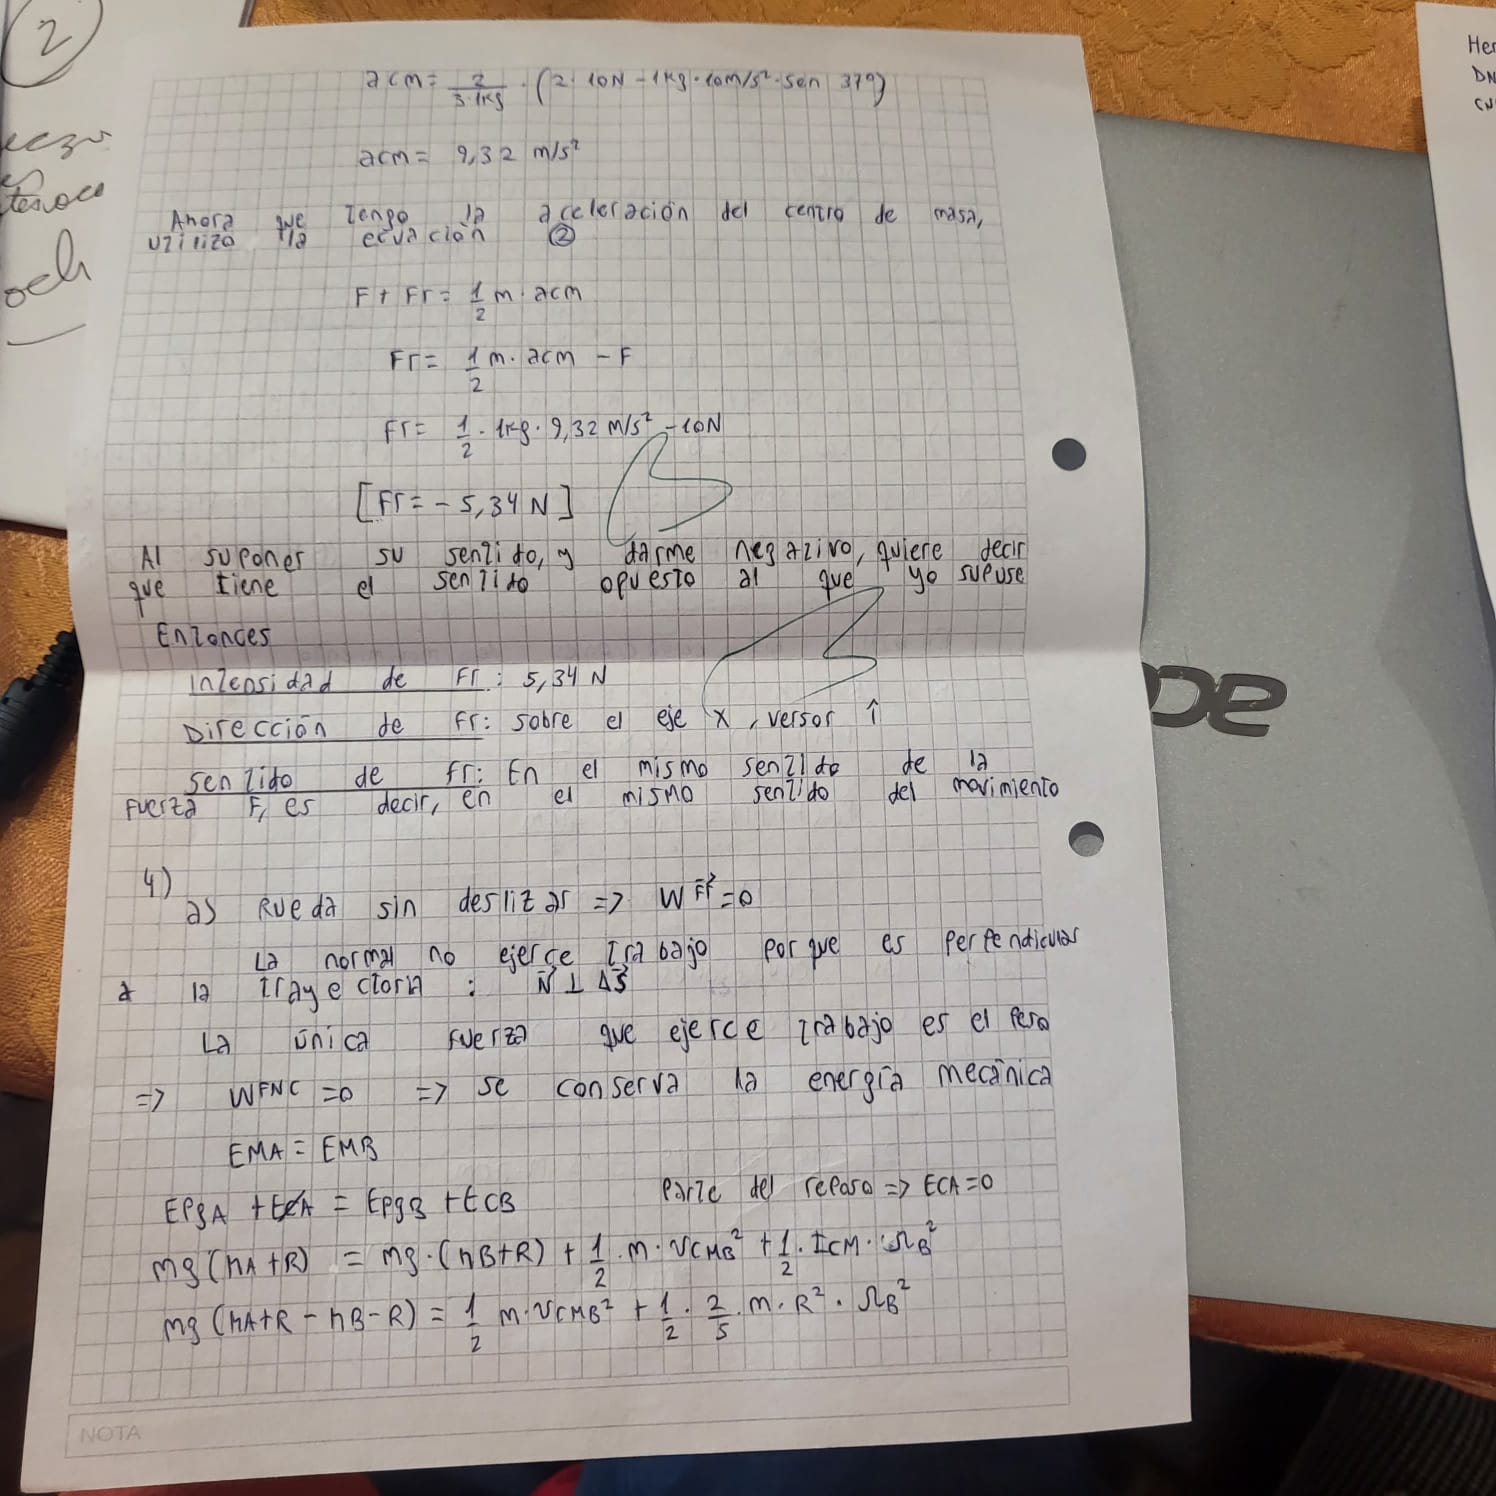 2
acm = 2/3·1kg · (2·10N - 1kg·10m/s²·sen 37º)
acm = 9,32 m/s²
Ahora que tengo la aceleración del centro de masa,
utilizo la ecuación ②
F + Fr = 1/2 m·acm
Fr = 1/2 m·acm - F
Fr = 1/2 · 1kg · 9,32 m/s² - 10N
[Fr = - 5,34 N]
Al suponer su sentido, y darme negativo, quiere decir
que tiene el sentido opuesto al que yo supuse
Entonces
Intensidad de Fr: 5,34 N
Dirección de Fr: sobre el eje x, versor î
Sentido de Fr: En el mismo sentido de la
fuerza F, es decir, en el mismo sentido del movimiento
4)
a) Rueda sin deslizar => WFr=0
La normal no ejerce trabajo porque es perpendicular
a la trayectoria : N ⊥ ΔS
La única fuerza que ejerce trabajo es el peso
=> WFNC = 0 => se conserva la energía mecánica
EMA = EMB
EPgA + ECA = EPgB + ECB Parte del reposo => ECA=0
mg(hA+R) = mg·(hB+R) + 1/2·m·VCMB² + 1/2·ICM·ΩB²
mg(hA+R-hB-R) = 1/2 m·VCMB² + 1/2·2/5·m·R²·ΩB²
NOTA
acer
Her
DN